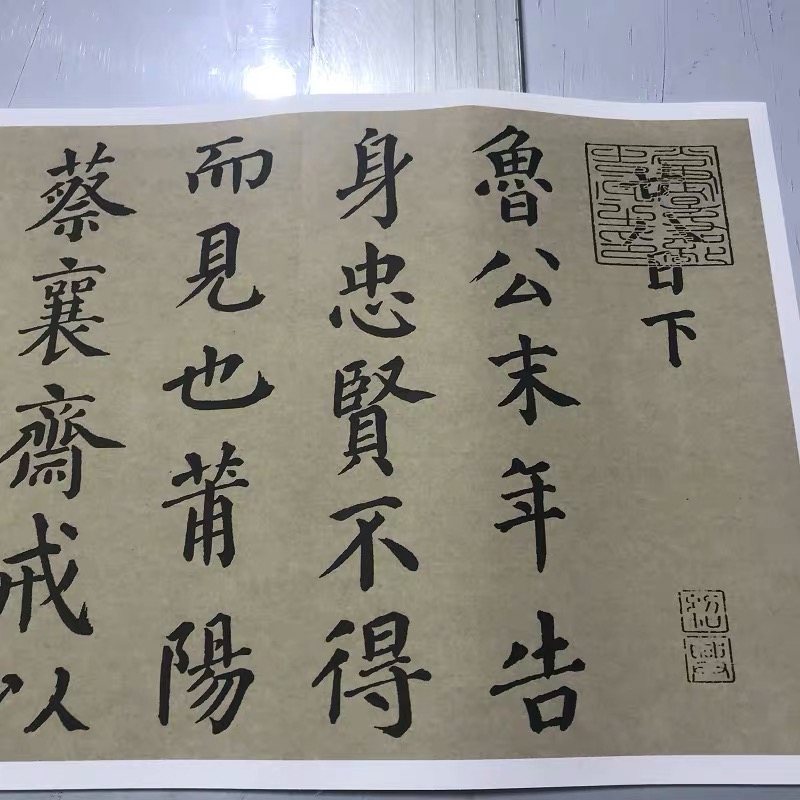 廿八日下
紹興
魯公末年告
身忠賢不得
而見也莆陽
蔡襄齋戒以